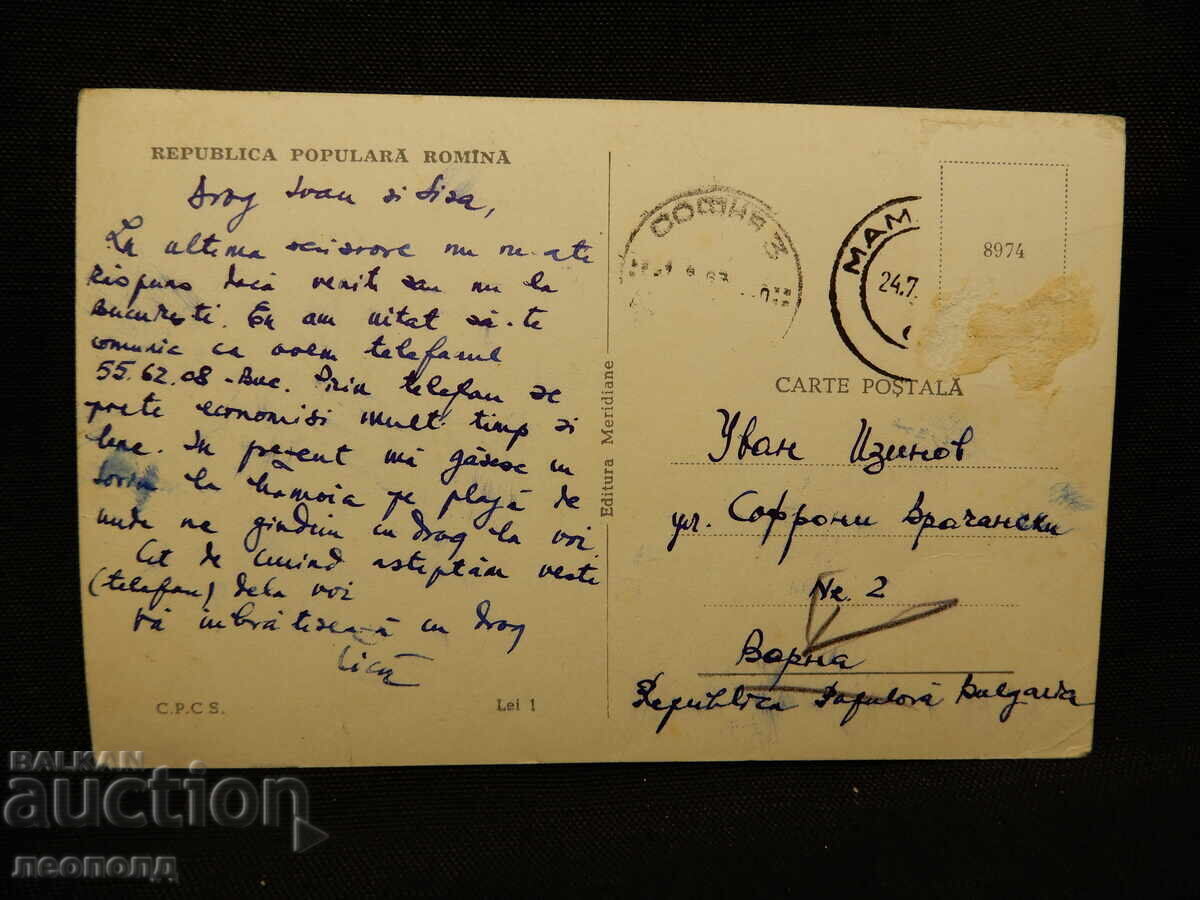 REPUBLICA POPULARĂ ROMÎNĂ
Drag Ivan si Lisa,
La ultima scisrore nu ne-ate
Rispuns dacă veniti sau nu la
Bucuresti. Eu am uitat să-te
comunic ca avem telefanul
55.62.08 - Buc. Prin telefan se
pate economisi mult timp si
bene. In prezent mă găsesc cu
la Mamaia pe plajă de
unde ne gindim cu drag la voi
Cit de curind asteptăm veste
(telefan) dela voi
Vă inbrătisează cu drag
C.P.C S.
Lei 1
Editura Meridiane
СОФИЯ 3
МАМ
24.7
8974
CARTE POȘTALĂ
Уван Изинов
ул. Софрони Врачански
Nr. 2
Варна
Republica Populară Bulgaria
BALKAN
auction
леополд